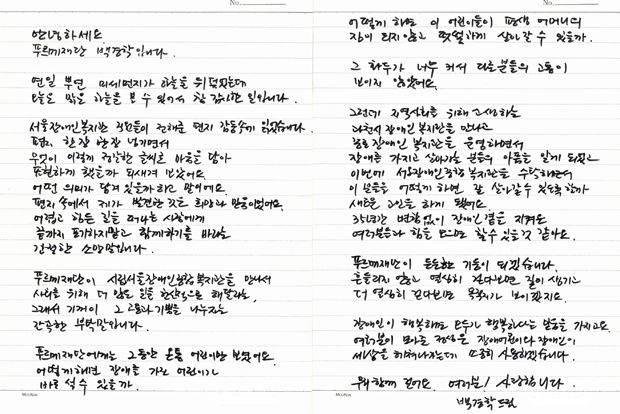 No.
안녕하세요
푸르메재단 백경학입니다.
연일 뿌연 미세먼지가 하늘을 뒤덮었는데
오늘은 맑은 하늘을 볼 수 있어서 참 감사한 일입니다.
서울장애인복지관 직원들이 전해준 편지 감동속에 읽었습니다.
편지 한장 한장 넘기면서
무엇이 이렇게 절절한 글씨로 마음을 담아
표현하게 했을까 되새겨 보았어요.
어떤 의미가 담겨 있을까 하고 말이에요.
편지 속에서 제가 발견한 것은 희망과 믿음이었어요.
어렵고 힘든 길을 떠나는 사람에게
끝까지 포기하지말고 함께하기를 바라는
간절한 소망말입니다.
푸르메재단이 시립서울장애인종합복지관을 만나서
사회를 위해 더 많은 일을 헌신적으로 해달라는,
그래서 기꺼이 그 고통과 기쁨을 나누자는
간곡한 부탁말입니다.
푸르메재단에게는 그동안 온통 어린이만 보였어요.
어떻게하면 장애를 가진 어린이가
바로 설 수 있을까.
No.
어떻게 하면 이 어린이들이 평생 어머니의
짐이 되지 않고 떳떳하게 살아갈 수 있을까.
그 화두가 너무 커서 다른 분들의 고통이
보이지 않았어요.
그런데 지역사회를 위해 고생하는
과천시 장애인 복지관을 만나고
종로장애인 복지관을 운영하면서
장애를 가지고 살아가는 분들의 아픔을 알게 되었고
이번에 서울장애인종합복지관을 수탁하면서
이 분들을 어떻게 하면 잘 살아갈 수 있도록 할까
새로운 고민을 하게 됐어요.
35년간 변함없이 장애인 곁을 지켜온
여러분들과 힘을 모으면 할 수 있을 것 같아요.
푸르메재단이 든든한 기둥이 되겠습니다.
흔들리지 않고 열심히 걷다보면 길이 생기고
더 열심히 걷다보면 목적지가 보이겠지요.
장애인이 행복해야 모두가 행복하다는 믿음을 가지고요.
여러분이 모아준 정성은 장애어린이와 장애인이
세상을 헤쳐나가는데 소중히 사용하겠습니다.
우리 함께 걸어요. 여러분! 사랑합니다.
백경학 드림